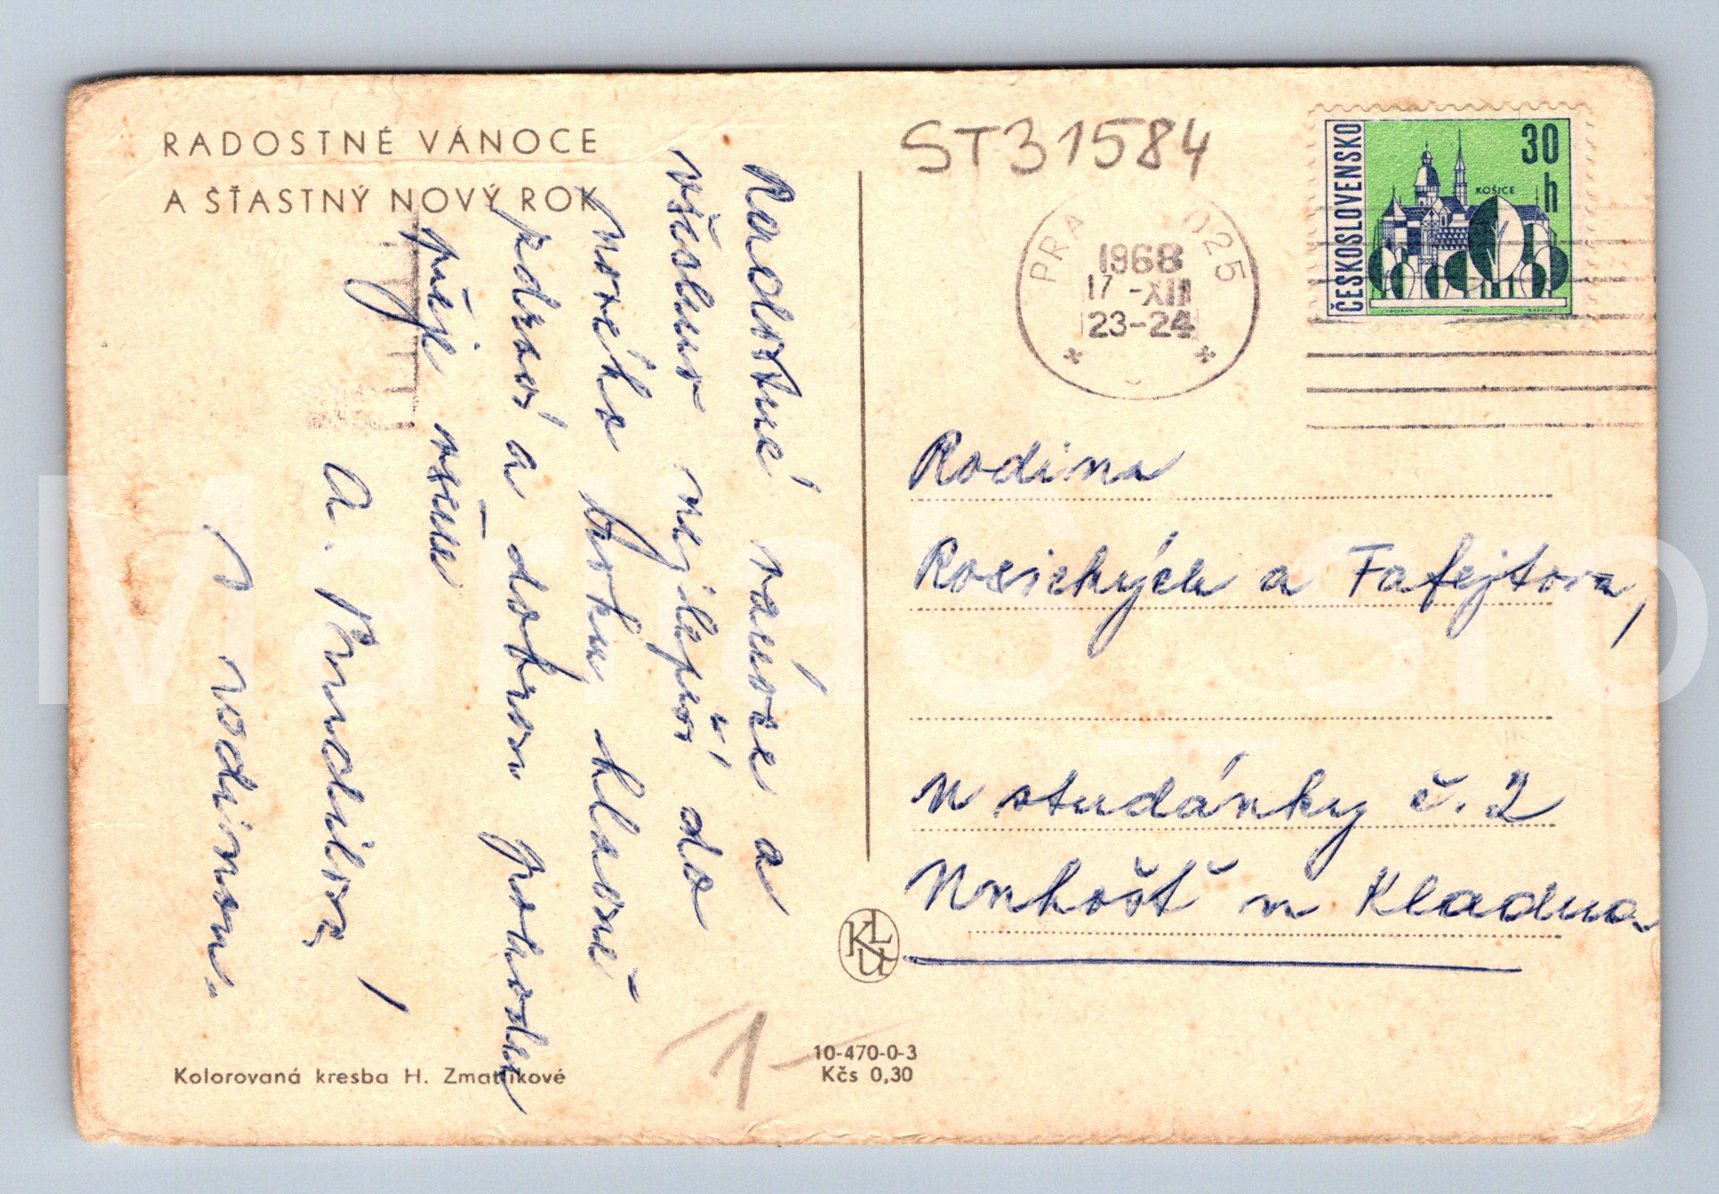 RADOSTNÉ VÁNOCE
A ŠŤASTNÝ NOVÝ ROK
Radostné vánoce a
všeho nejlepší do
nového roku hlavně
zdraví a dobrou pohodu
přeje vám
a
s rodinou.
Kolorovaná kresba H. Zmatlíkové
10-470-0-3
Kčs 0,30
KLU
1-
ST31584
PRA 025
1968
17-XII
23-24
ČESKOSLOVENSKO
30 h
KOŠICE
Rodina
Rosických a Fafejtova,
U studánky č. 2
Unhošť u Kladna